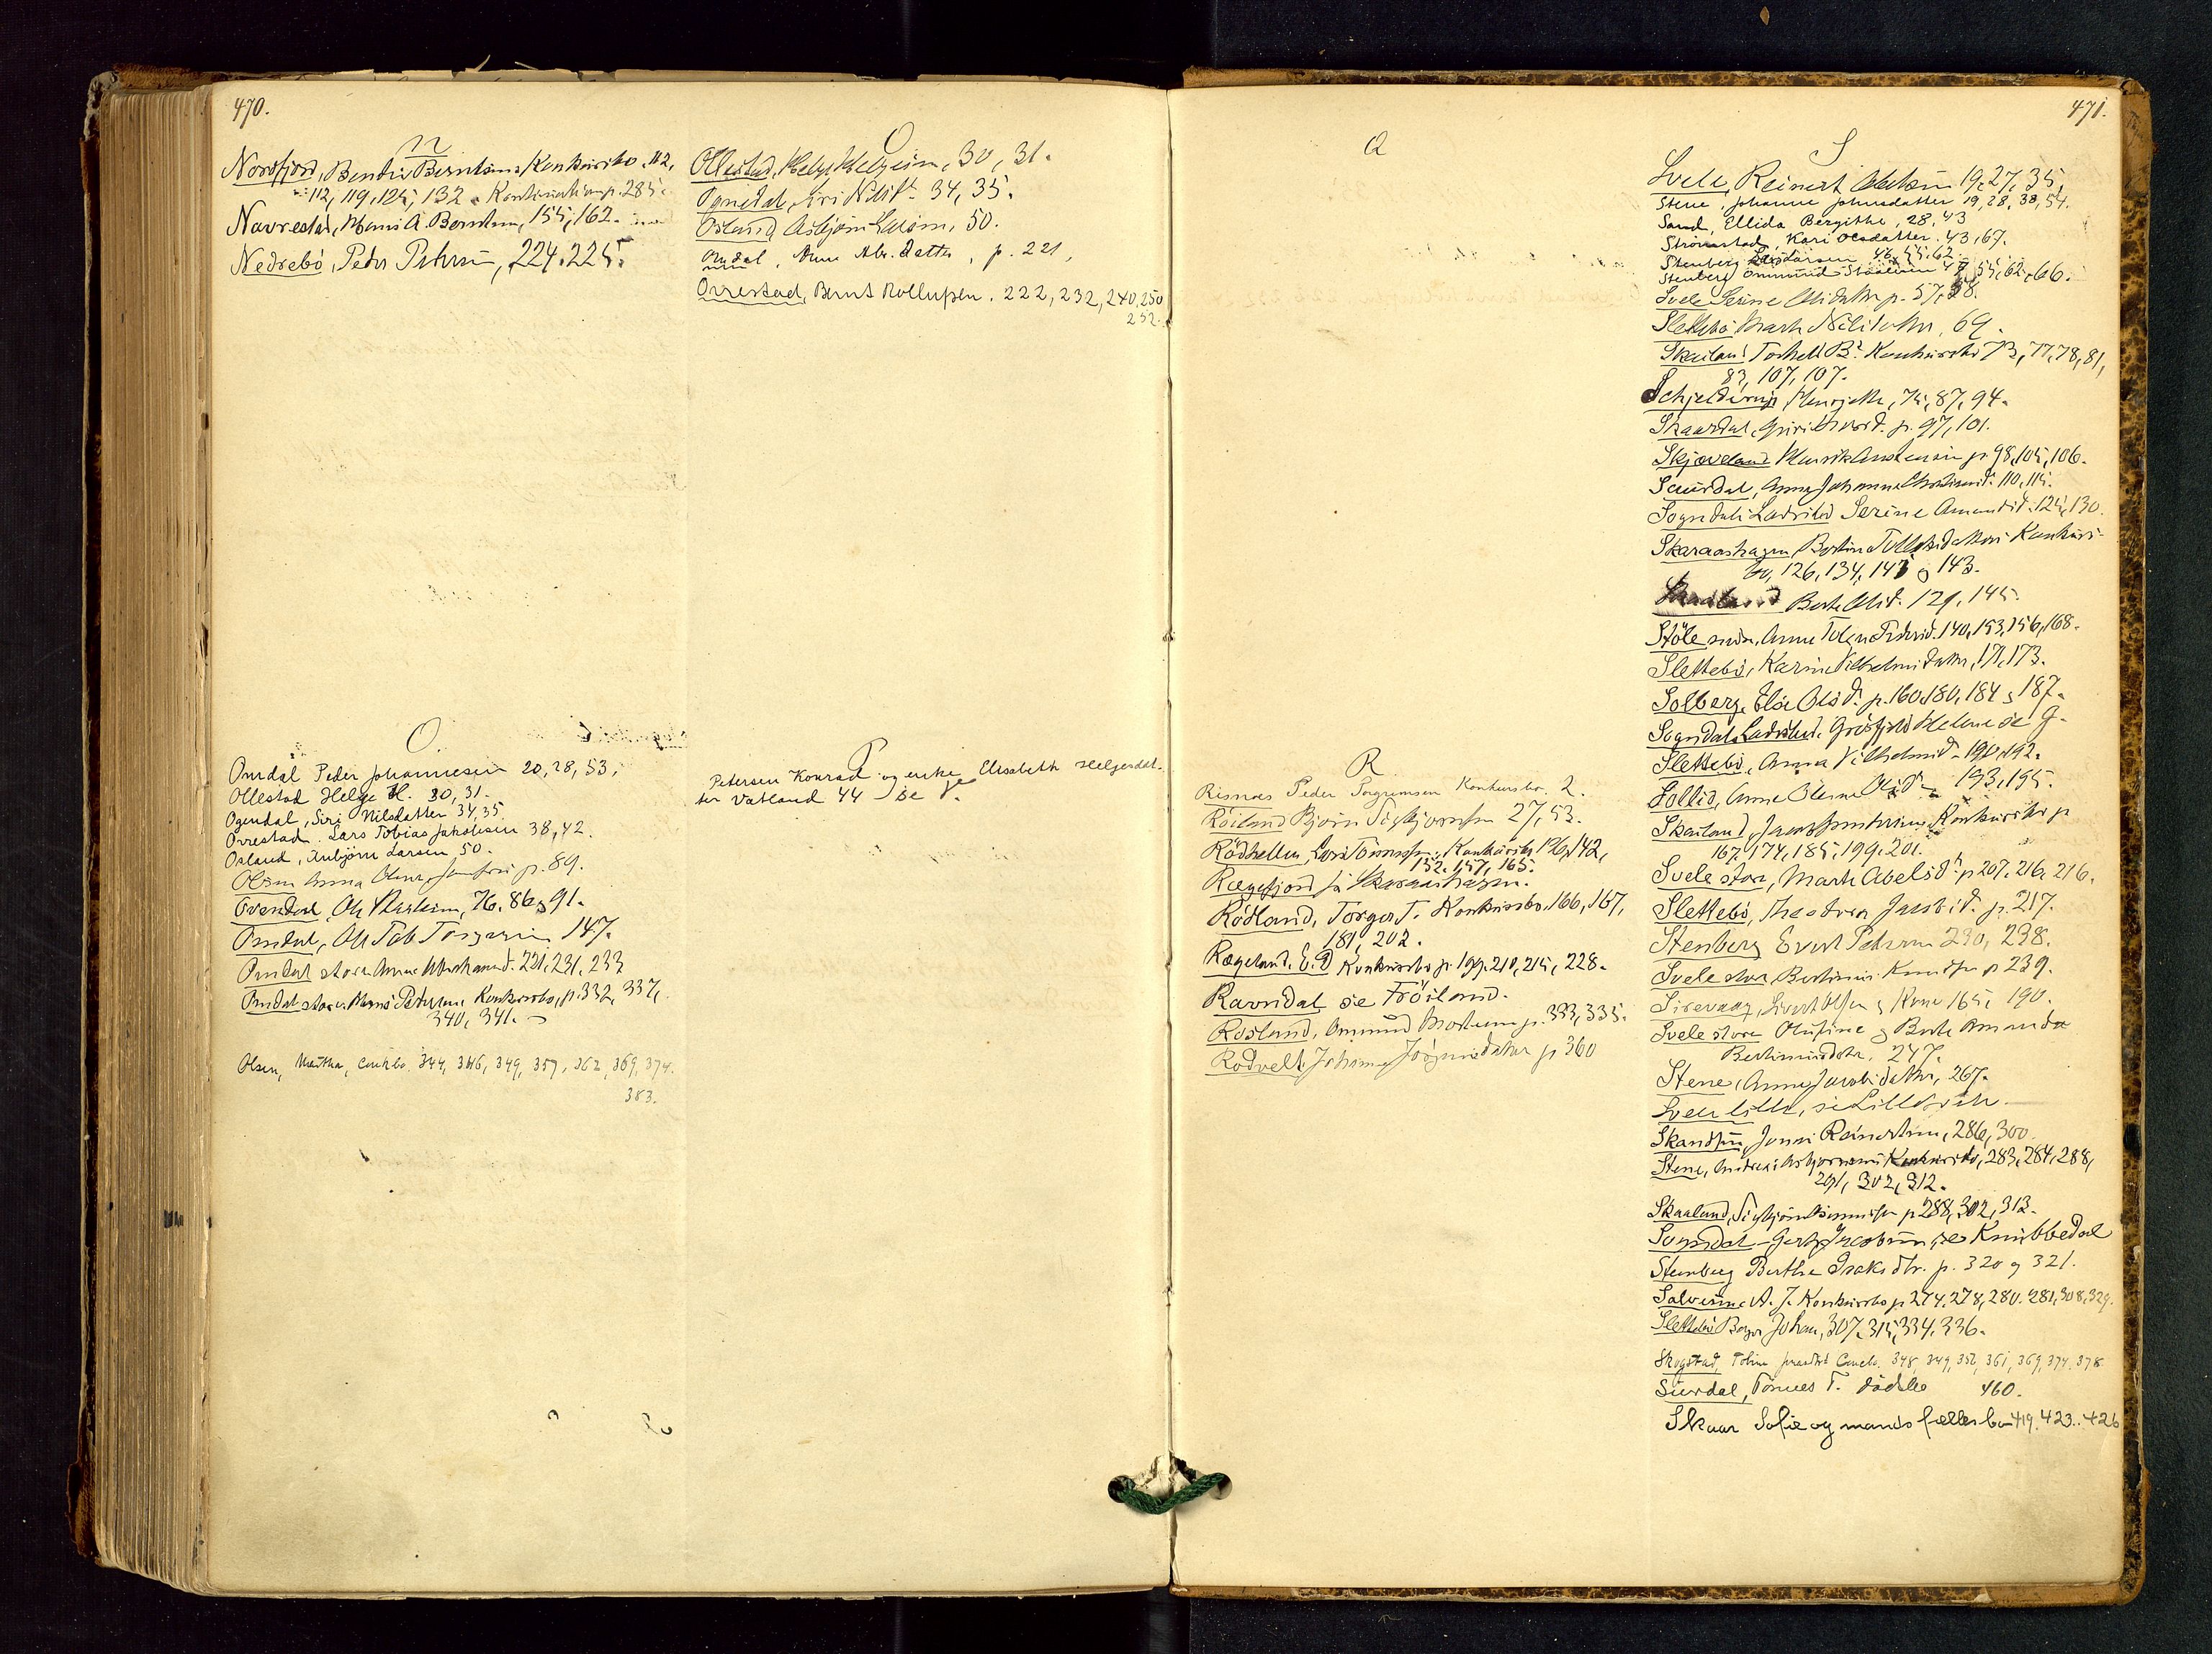 470.
N
Nordfjord, Bendix Berntsens Konkursbo. 112,
112, 119, 125, 132. Kontinuation p. 285.
Navrestad, Hans A. Berntsen, 155, 162.
Nedrebö, Peder Petersen, 224. 225.
O
Ollestad, Helge Helgesen, 30, 31.
Ognedal, Siri Nilsd. 34, 35.
Osland Asbjörn Larsen, 50.
Omdal, Anne Abr. datter, p. 221,
Orrestad, Bernt Rollufsen. 222, 232, 240, 250
252.
O.
Omdal Peder Johannesen 20, 28, 53,
Ollestad Helge H. 30, 31.
Ogendal, Siri Nilsdatter 34, 35
Orrestad. Lars Tobias Jakobsen 38, 42.
Osland, Asbjörn Larsen 50.
Olsen Anna p. 89.
Ovendal, Ole 76. 86 & 91.
Omdal, Ole Tob. Torgersen 147.
Omdal store Anne Abrahamsd. 221, 231, 233
Omdal store Hans Petersens Konkursbo, p. 332, 337,
340, 341.
Olsen, Martha, Conkbo. 344, 346, 349, 357, 362, 369, 374.
383.
P
Petersen Konrad og enke Elisabeth Helgesdat-
ter Vatland 44 se V.
471.
Q
R
Risnæs Peder Torgrimsen Konkursbo. 2.
Röiland Bjørn Sigbjørnsen 27, 53.
Rödhellen, Lars Tönnessens Konkursbo 126, 142,
152, 157, 165.
Rægefjord se Skaraashagen.
Rödland, Torger T. Konkursbo. 166, 167,
181, 202.
Rægeland. E. D Konkursbo p. 199, 210, 215, 228.
Ravndal se Fröiland.
Rosland, Ommund p. 333, 335.
Rodvelt, Johanne datter p 360
S
Svele, Reinert 19, 27, 35,
Stene, Johanne Johnsdatter 19, 28, 38, 54.
Sand, Ellida Bergithe, 28, 43
Strömstad, Kari Olsdatter. 43, 67.
Stenberg Lars Larsen 46, 55, 62.
Stenberg Ommund Staalesen 47, 55, 62, 66.
Svele Serine Olsdatter p. 57, 58.
Slettebö Marta Nilsdatter, 69.
Skailand Torkell B. Konkursbo 73, 77, 78, 81,
83, 107, 107.
Schjelderup, Henrjette, 75, 87, 94.
Skaardal, Guri p. 97, 101.
Skjæveland Henrik p. 98, 105, 106.
Saurdal, Anna Johanne Christiansd. 110, 115.
Sogndals Ladested Serine Amundsd. 125, 130.
Skaraashagen, Bertine Tollefsdatters Konkurs-
bo, 126, 134, 141 og 143.
Skadland Berte Olsd. 129, 145.
Störe Anne 140, 153, 156, 168.
Slettebö, Karine Vilhelmsdatter, 171, 173.
Solberg, Elsa Olsd. p. 160, 180, 184 og 187.
Sogndals Ladested, Grösfjeld Helene se G.
Slettebö, Anna Vilhelmsd. 190, 192.
Sollid, Anne Olene Olsd. 193, 195.
Skailand, Konkursbo p
167, 174, 185, 199, 201.
Svele store, Marta Abelsd. p 207. 216, 216.
Slettebö, Theodora Jacobsd. p. 217.
Stenberg Evert Petersen 230, 238.
Svele store Bertinius Knudsen p 239.
Sirevaag, Sivert Olsen og Kone 165, 190.
Svele store Olufine og Berte Amanda
Bertinusdotr. 247.
Stene, Anna Jacobsdatter, 267.
Svele lille, se Lillesvele
Skandsen, Jonas Reinertsen, 286, 300.
Stene, Andreas Asbjørnsens Konkursbo, 283, 284, 288,
291, 302, 312.
Skaaland, Sigbjørn p 288, 302, 313.
Sogndal - Gertz Jacobsen, se Knubbedal
Stenberg Berthe Isaksdtr. p. 320 og 321.
Salvesen A. J. Konkursbo p 274, 278, 280. 281, 308, 329.
Slettebö Johan, 307, 315, 334, 336.
Skogstad, Tobine Concbo. 348, 349, 352, 361, 369, 374, 378
Surdal, Tönnes T. dödsbo 460.
Skaar Sofie og mands fellesbo 419. 423. 426